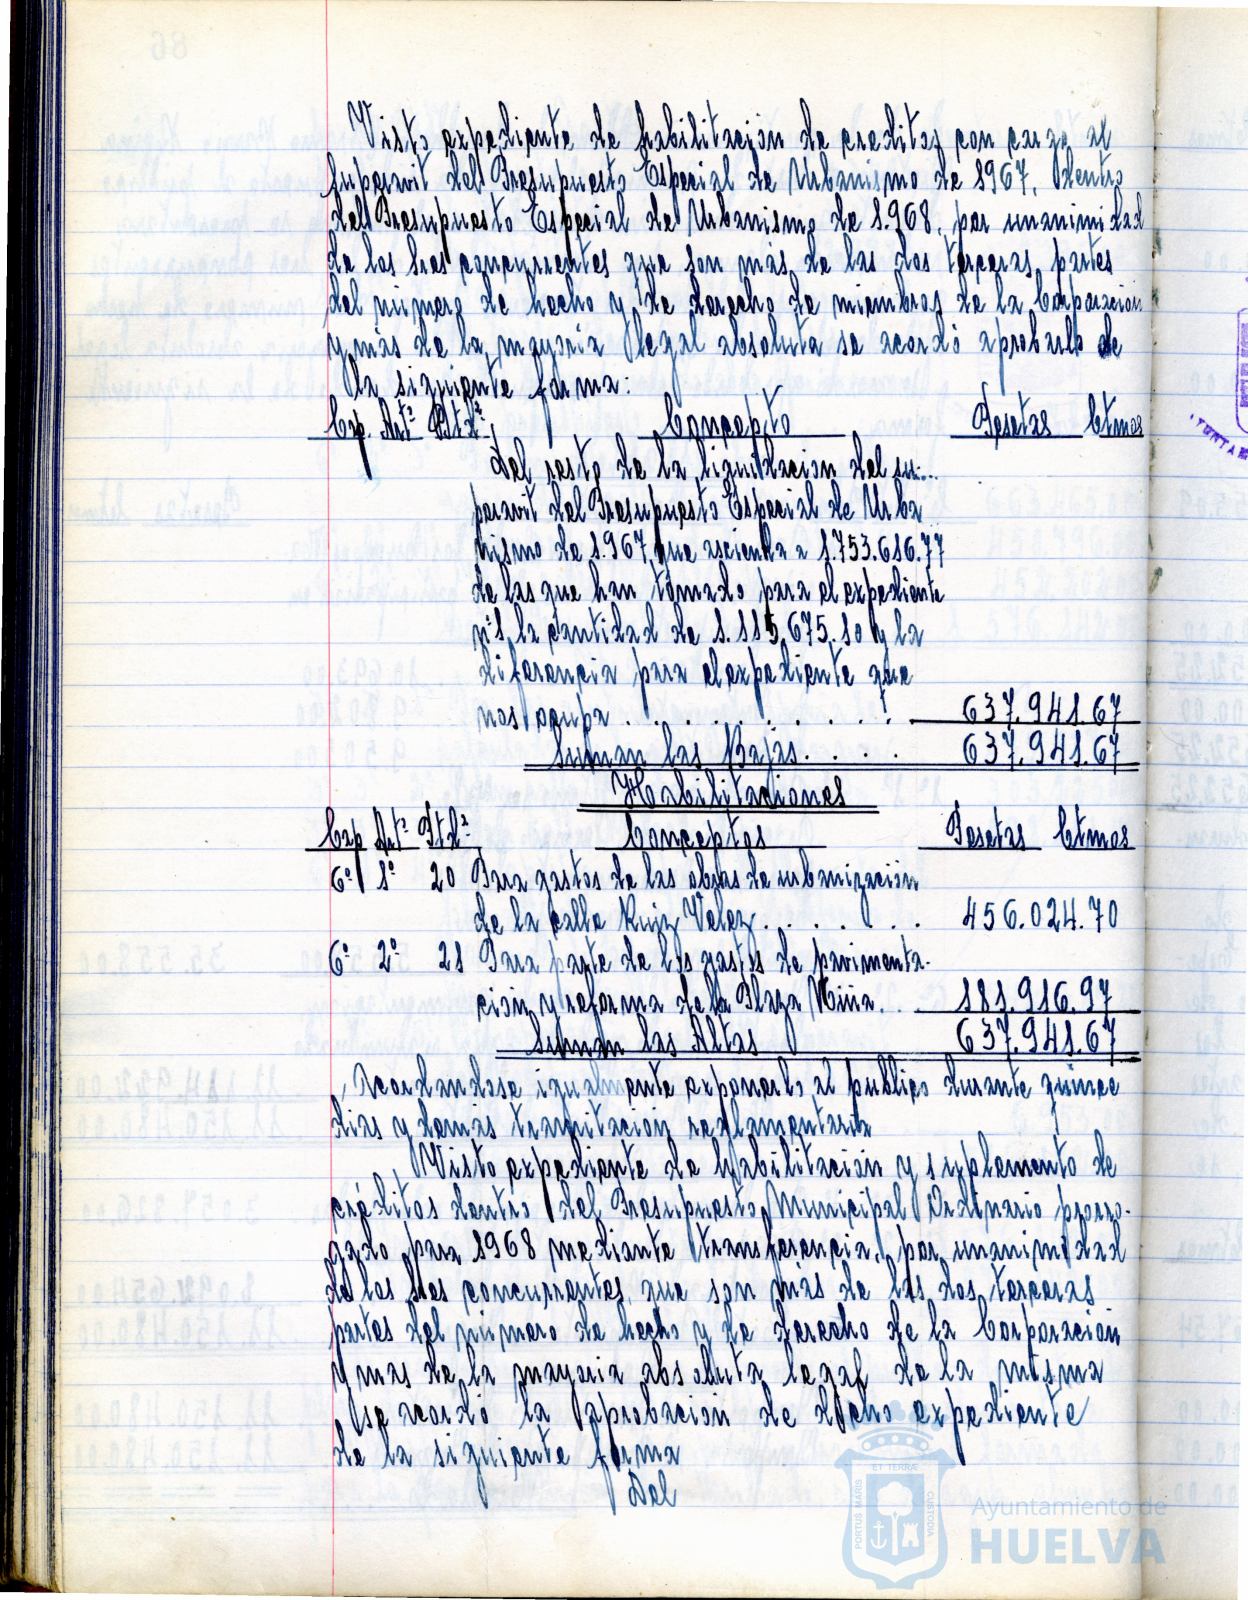 Visto expediente de habilitación de creditos con cargo al
superavit del Presupuesto Especial de Urbanismo de 1967, dentro
del Presupuesto Especial de Urbanismo de 1.968, por unanimidad
de los Sres concurrentes que son más de las dos terceras partes
del número de hecho y de derecho de miembros de la Corporación
y más de la mayoria legal absoluta se acordó aprobarlo de
la siguiente forma:
Cap. Artº Ptdª Concepto Pesetas Ctmos
Del resto de la liquidación del su-
peravit del Presupuesto Especial de Urba
nismo de 1.967 que asciende a 1.753.616.77
de las que han tomado para el expediente
nº 1 la cantidad de 1.115.675.10 y la
diferencia para el expediente que
nos ocupa . . . . . . . . . 637.941.67
Suman las Bajas. . . . 637.941.67
Habilitaciones
Cap Artº Ptdª Conceptos Pesetas Ctmos
6º 1º 20 Para gastos de las obras de urbanización
de la calle Ruiz Vélez . . . . . . 456.024.70
6º 2º 21 Para parte de los gastos de pavimenta-
ción y reforma de la Plaza Niña. . . 181.916.97
Suman las Altas 637.941.67
Acordandose igualmente exponerlo al publico durante quince
dias y demás tramitación reglamentaria
Visto expediente de habilitación y suplemento de
créditos dentro del Presupuesto Municipal Ordinario prorro-
gado para 1968 mediante transferencia, por unanimidad
de los Sres concurrentes, que son más de las dos terceras
partes del número de hecho y de derecho de la Corporación
y mas de la mayoria absoluta legal de la misma
se acordó la aprobación de dicho expediente
de la siguiente forma
Del
PORTUS MARIS
ET TERRÆ
CUSTODIA
Ayuntamiento de
HUELVA